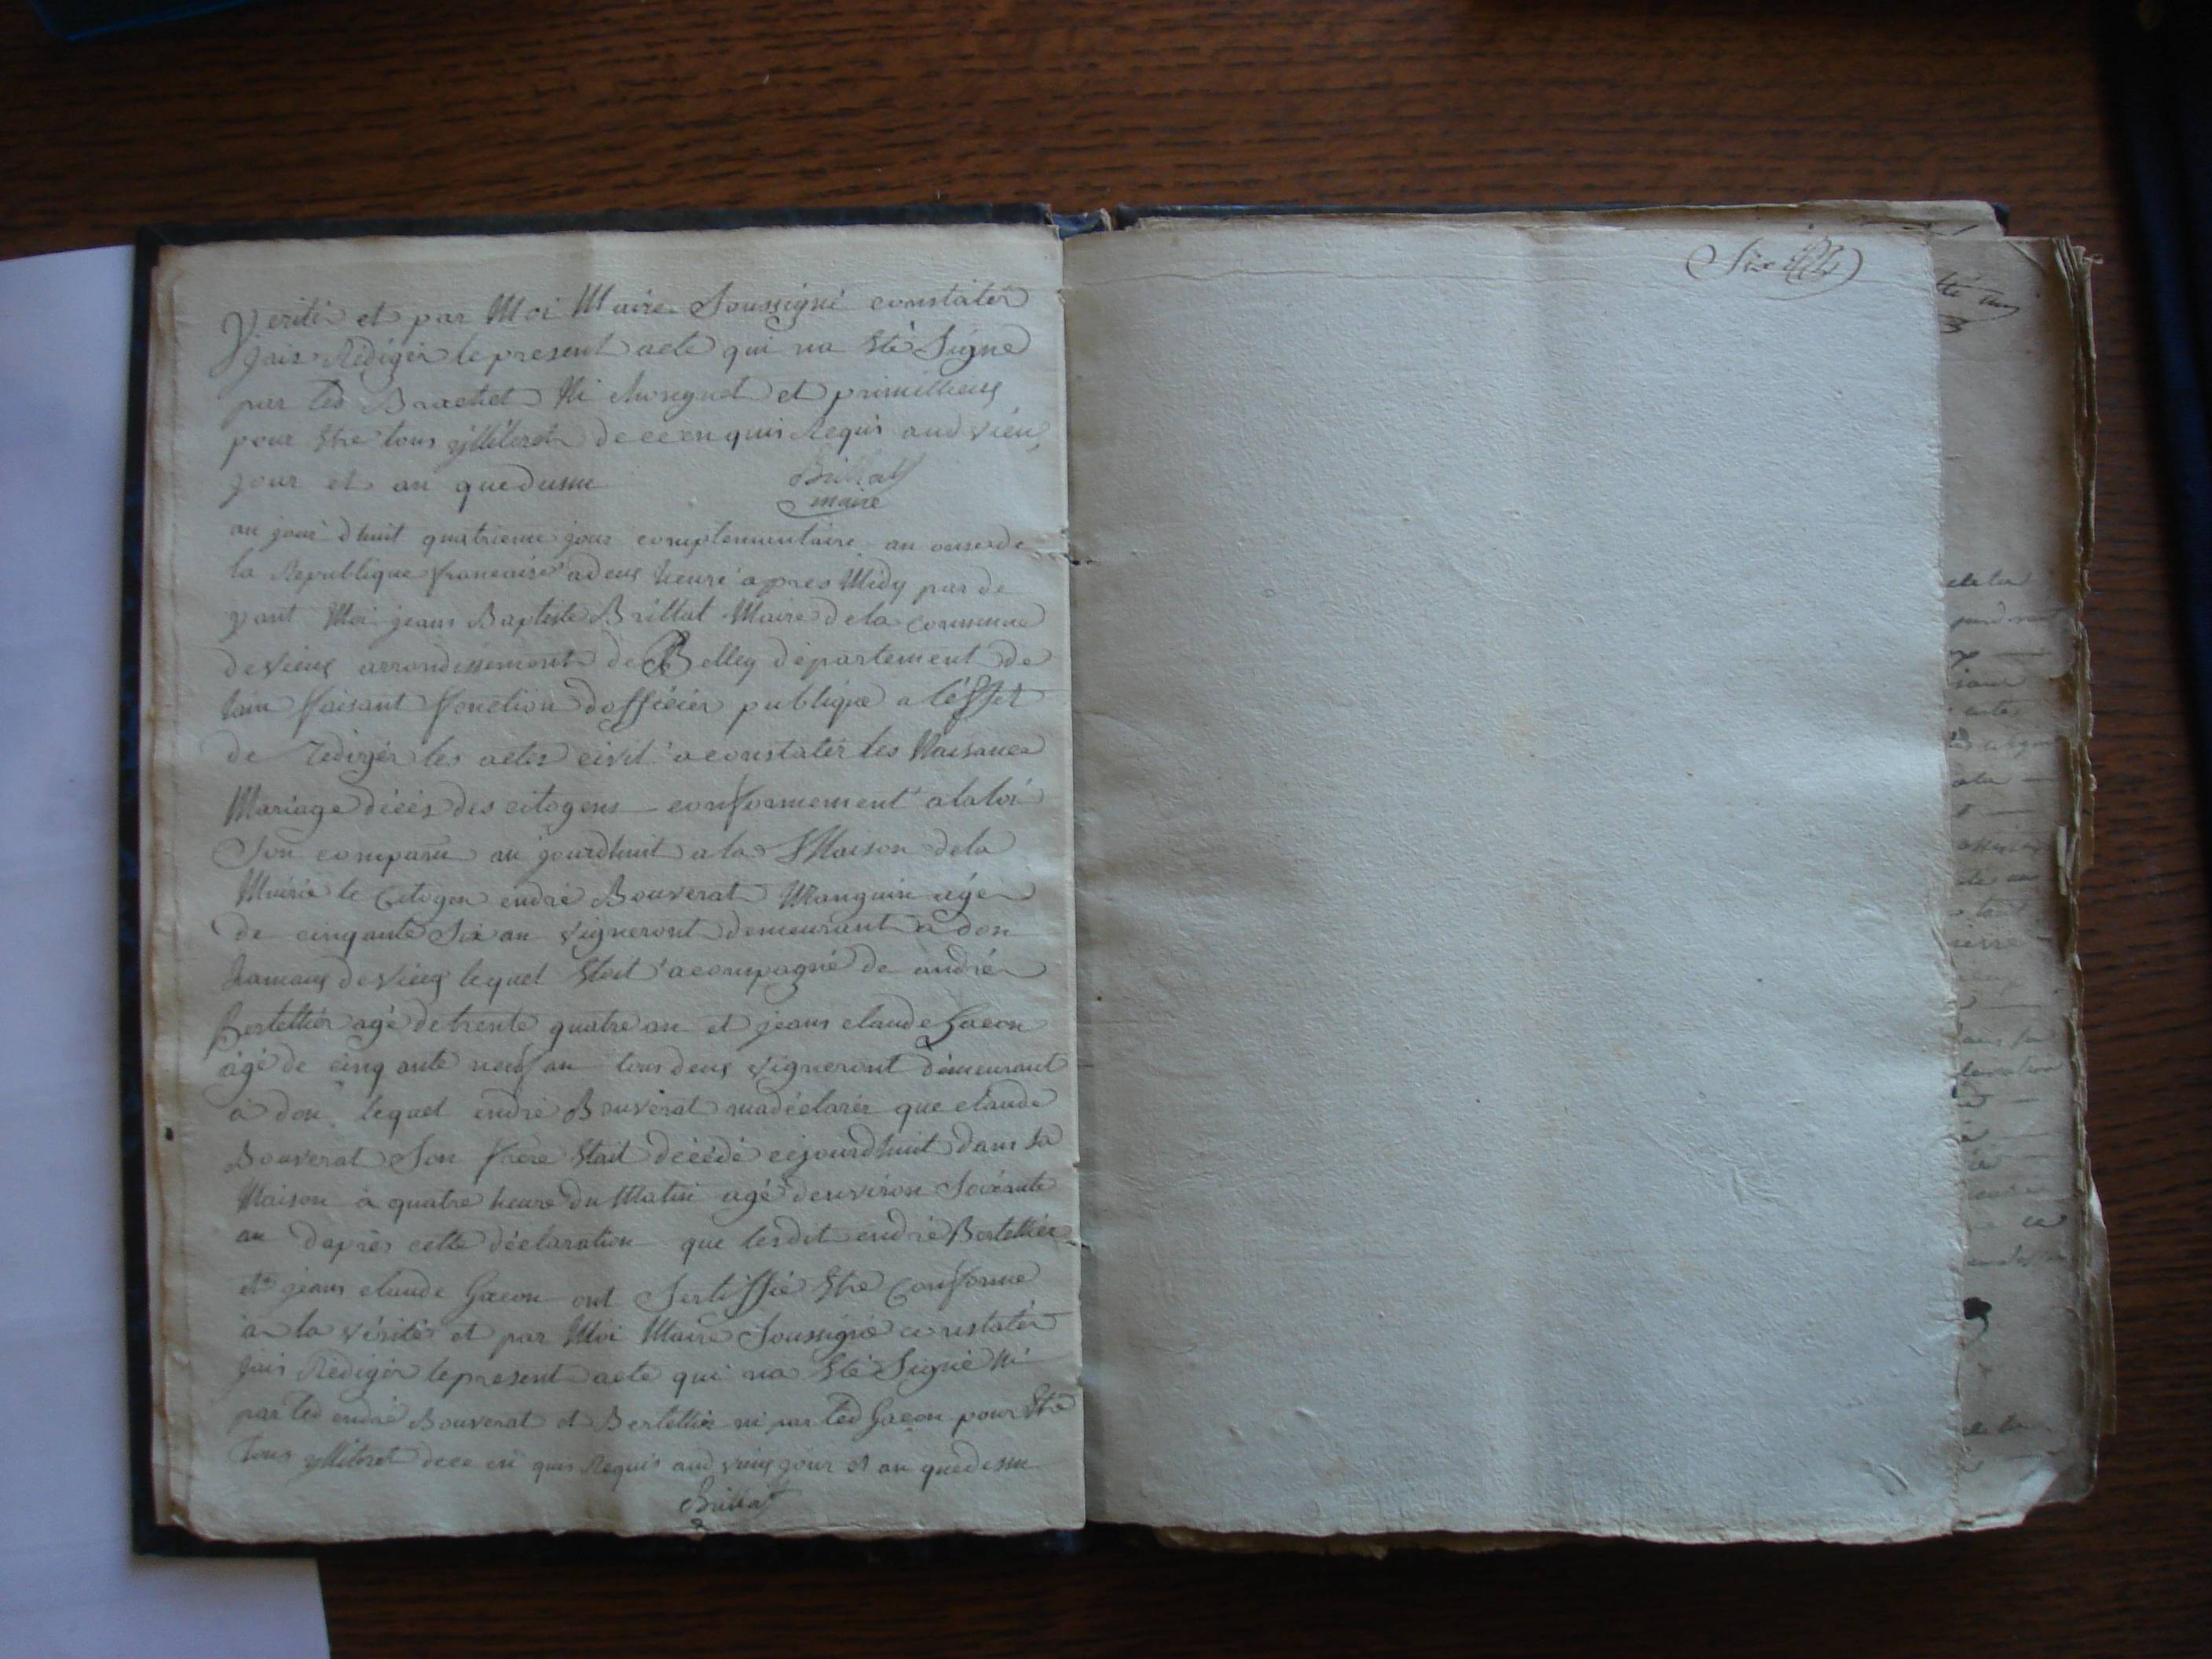 Verité et par Moi Maire Soussigné constatér
jais Rédigér le present acte qui na Eté Signé
par led Brachet Ni et
pour Etre tous yllileret de ce enquis Requis aud vieu
jour et an que dessu
Brillat
maire
au jour dhuit quatrieme jour complementaire an onse de
la Republique francaise a deux heure apres Midy par de
vant Moi jeans Baptiste Brillat Maire de la commune
de vieux arrondissement de Belley département de
lain faisant fonction dofficiér publique a léffet
de redigér les actes civil a constatér les Naisance
Mariage décès des citogens conformement a la loi
Son comparu au jourdhuit a la Maison de la
Mairie le Citogen endré Bouverat Manguin agé
de cinqante Six an vigneront demeurant a don
hamaux de vieux lequel Etoit acompagné de andré
Bertelliér agé de trente quatre an et jeans claude Gacon
agé de cinq ante neuf an tous deux vigneront demeurant
a don lequel endré Bouverat ma déclarér que claude
Bouverat Son frére Etait décédé cejourdhuit dans sa
Maison a quatre heure du Matin agé denviron Soixante
an daprès cette déclaration que lesdit endré Bertelliér
et jeans claude Gacon ont Sertiffié Etre Conforme
a la vérité et par Moi Maire Soussigné constatér
jais Rédigér le present acte qui na Eté Signé Ni
par led endré Bouverat et Bertelliér ni par led Gacon pour Etre
tous yllileret de ce en quis Requis aud vieux jour et an que dessu
Brillat
Six